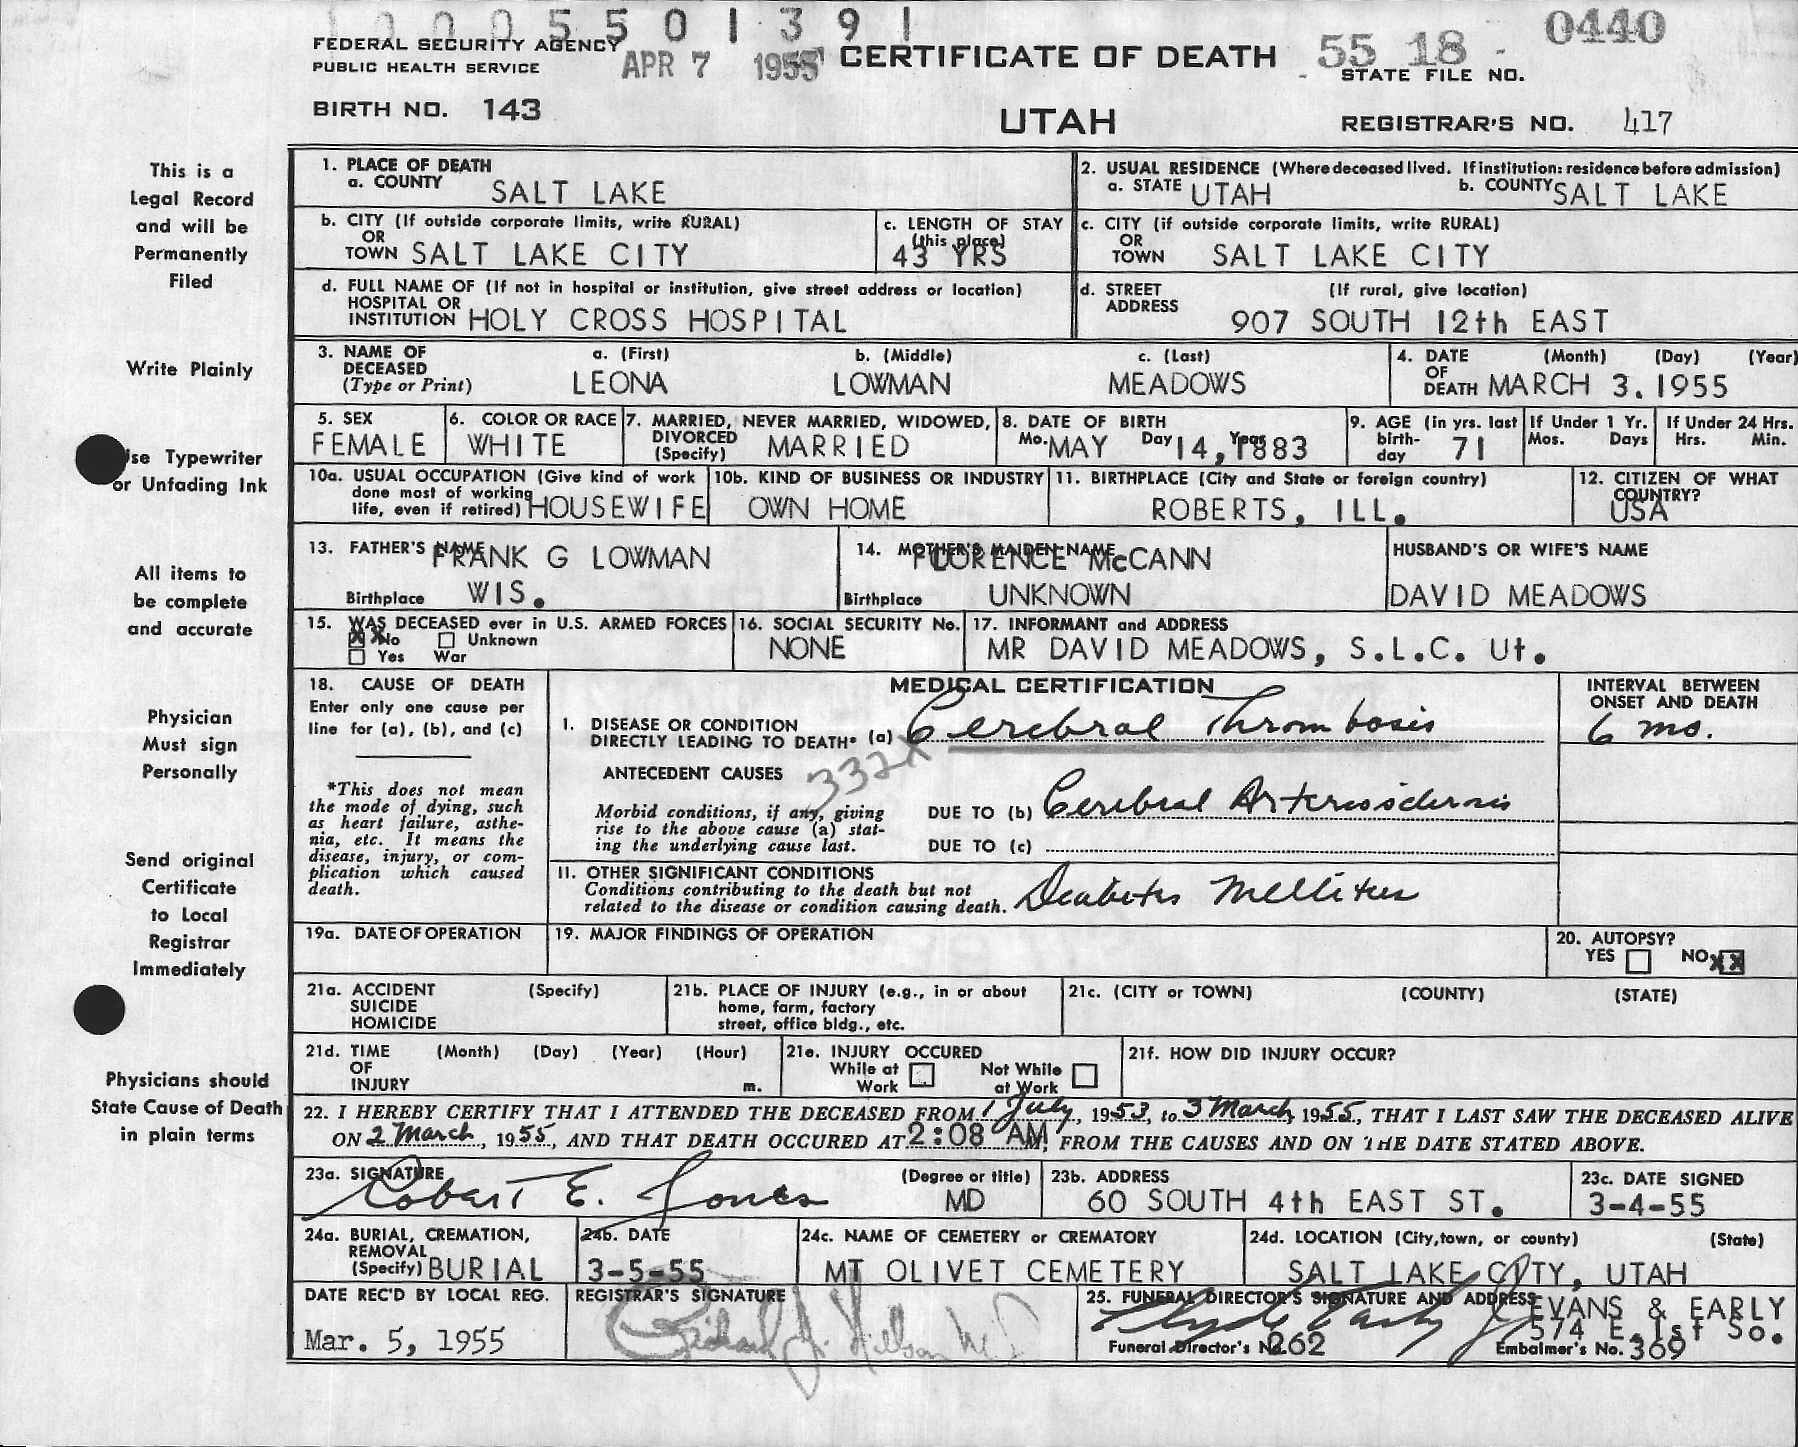 1000550 1391
FEDERAL SECURITY AGENCY
PUBLIC HEALTH SERVICE
APR 7 1955
CERTIFICATE OF DEATH
55 18 - 0440
STATE FILE NO.
BIRTH NO. 143
UTAH
REGISTRAR'S NO. 417
This is a
Legal Record
and will be
Permanently
Filed
Write Plainly
Use Typewriter
or Unfading Ink
All items to
be complete
and accurate
Physician
Must sign
Personally
Send original
Certificate
to Local
Registrar
Immediately
Physicians should
State Cause of Death
in plain terms
1. PLACE OF DEATH
a. COUNTY SALT LAKE
2. USUAL RESIDENCE (Where deceased lived. If institution: residence before admission)
a. STATE UTAH b. COUNTY SALT LAKE
b. CITY (If outside corporate limits, write RURAL)
OR
TOWN SALT LAKE CITY
c. LENGTH OF STAY
(this place)
43 YRS
c. CITY (if outside corporate limits, write RURAL)
OR
TOWN SALT LAKE CITY
d. FULL NAME OF (If not in hospital or institution, give street address or location)
HOSPITAL OR
INSTITUTION HOLY CROSS HOSPITAL
d. STREET (If rural, give location)
ADDRESS
907 SOUTH 12th EAST
3. NAME OF a. (First) b. (Middle) c. (Last)
DECEASED
(Type or Print) LEONA LOWMAN MEADOWS
4. DATE (Month) (Day) (Year)
OF
DEATH MARCH 3. 1955
5. SEX
FEMALE
6. COLOR OR RACE
WHITE
7. MARRIED, NEVER MARRIED, WIDOWED,
DIVORCED
(Specify) MARRIED
8. DATE OF BIRTH
Mo. MAY Day 14, Year 1883
9. AGE (in yrs. last
birth-
day 71
If Under 1 Yr.
Mos. Days
If Under 24 Hrs.
Hrs. Min.
10a. USUAL OCCUPATION (Give kind of work
done most of working
life, even if retired) HOUSEWIFE
10b. KIND OF BUSINESS OR INDUSTRY
OWN HOME
11. BIRTHPLACE (City and State or foreign country)
ROBERTS, ILL.
12. CITIZEN OF WHAT
COUNTRY?
USA
13. FATHER'S NAME FRANK G LOWMAN
Birthplace WIS.
14. MOTHER'S MAIDEN NAME FLORENCE McCANN
Birthplace UNKNOWN
HUSBAND'S OR WIFE'S NAME
DAVID MEADOWS
15. WAS DECEASED ever in U.S. ARMED FORCES
XX No Unknown
Yes War
16. SOCIAL SECURITY No.
NONE
17. INFORMANT and ADDRESS
MR DAVID MEADOWS, S.L.C. Ut.
18. CAUSE OF DEATH
Enter only one cause per
line for (a), (b), and (c)
*This does not mean
the mode of dying, such
as heart failure, asthe-
nia, etc. It means the
disease, injury, or com-
plication which caused
death.
MEDICAL CERTIFICATION
I. DISEASE OR CONDITION
DIRECTLY LEADING TO DEATH* (a) Cerebral Thrombosis
332X
ANTECEDENT CAUSES
Morbid conditions, if any, giving
rise to the above cause (a) stat-
ing the underlying cause last.
DUE TO (b) Cerebral Arteriosclerosis
DUE TO (c)
II. OTHER SIGNIFICANT CONDITIONS
Conditions contributing to the death but not
related to the disease or condition causing death. Diabetes Mellitus
INTERVAL BETWEEN
ONSET AND DEATH
6 mo.
19a. DATE OF OPERATION
19. MAJOR FINDINGS OF OPERATION
20. AUTOPSY?
YES NO XX
21a. ACCIDENT (Specify)
SUICIDE
HOMICIDE
21b. PLACE OF INJURY (e.g., in or about
home, farm, factory
street, office bldg., etc.
21c. (CITY or TOWN) (COUNTY) (STATE)
21d. TIME (Month) (Day) (Year) (Hour)
OF
INJURY m.
21e. INJURY OCCURED
While at Not While
Work at Work
21f. HOW DID INJURY OCCUR?
22. I HEREBY CERTIFY THAT I ATTENDED THE DECEASED FROM 1 July, 1953, to 3 March, 1955, THAT I LAST SAW THE DECEASED ALIVE
ON 2 March, 1955, AND THAT DEATH OCCURED AT 2:08 AM, FROM THE CAUSES AND ON THE DATE STATED ABOVE.
23a. SIGNATURE (Degree or title)
Robert E. Jones MD
23b. ADDRESS
60 SOUTH 4th EAST ST.
23c. DATE SIGNED
3-4-55
24a. BURIAL, CREMATION,
REMOVAL
(Specify) BURIAL
24b. DATE
3-5-55
24c. NAME OF CEMETERY or CREMATORY
MT OLIVET CEMETERY
24d. LOCATION (City, town, or county) (State)
SALT LAKE CITY, UTAH
DATE REC'D BY LOCAL REG.
Mar. 5, 1955
REGISTRAR'S SIGNATURE
Richard
25. FUNERAL DIRECTOR'S SIGNATURE AND ADDRESS
EVANS & EARLY
574 E. 1st So.
Funeral Director's No. 262 Embalmer's No. 369